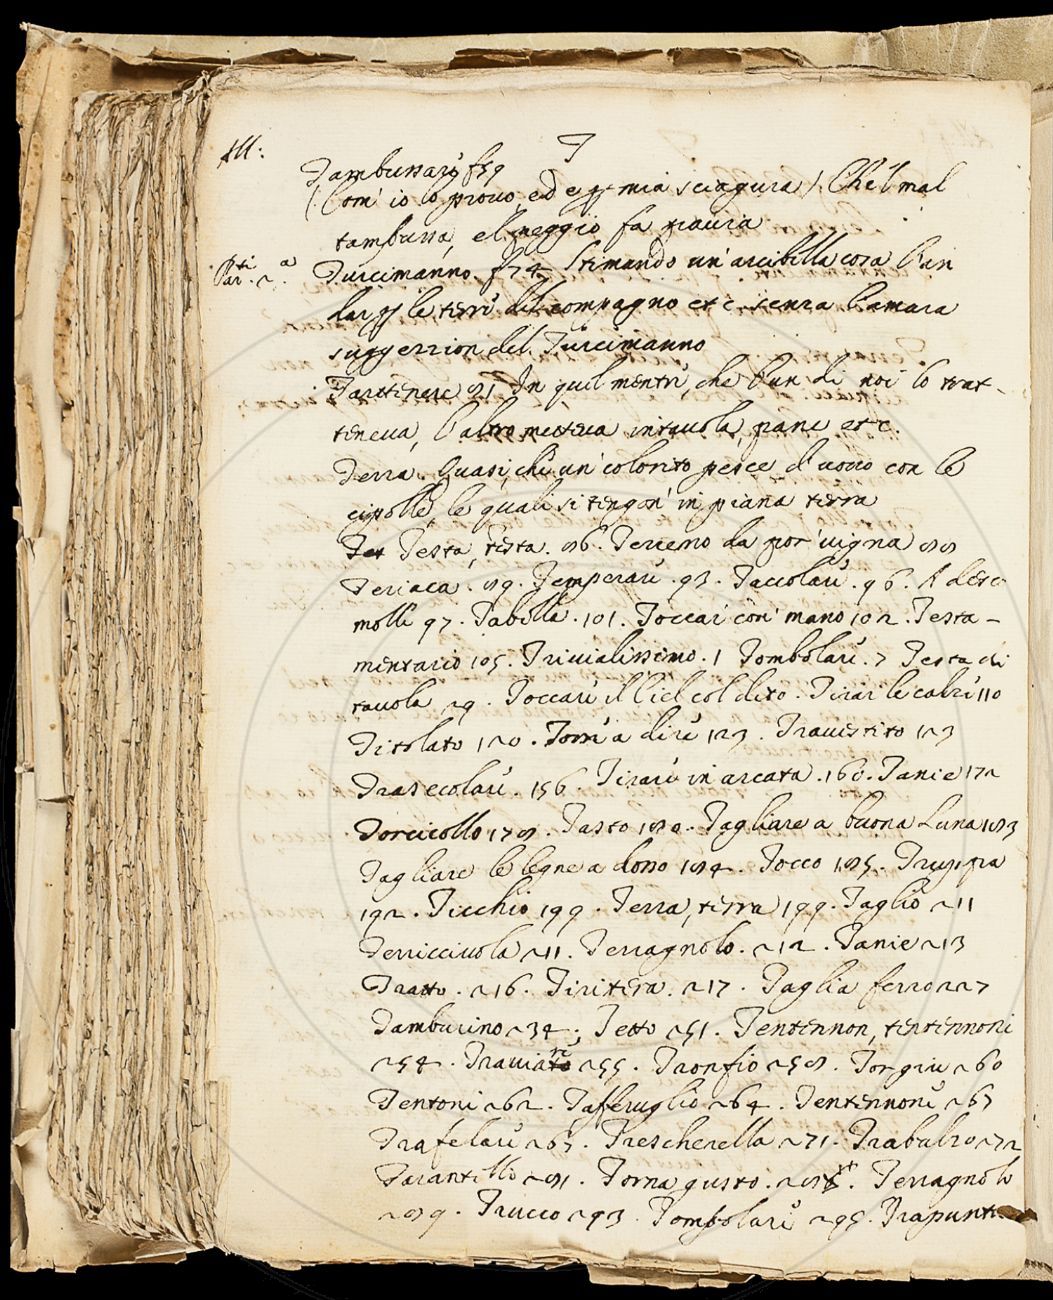 All:
T
Tambussare f 59
(Com' io lo provo, ed è p mia sciagura) Che'l mal
tambussa, e'l peggio fa paura
Pti Var. 2.a Turcimanno. f 74 Stimando un' arcibella cosa l'an
dar p le terre del compagno etc. senza l'amara
suggezzion del Turcimanno
Trattenere 81 In quel mentre, che l'un di noi lo trat-
teneva, l'altro metteva in tavola, pane etc.
Terra. Quasi, che un' colorito pesce d' uovo con le
cipolle, le quali si tengon' in piana terra
Testa, testa. 86. Terreno da por' vigna 88
Teriaca. 89. Temperare. 93. Taccolare. 96. A Desco
molle 97. Tabella. 101. Toccar' con' mano 102. Testa-
mentario 105. Trivialissimo. 1 Tombolare. 7 Testa di
tavola 29. Toccare il Ciel col dito. Tirar le calze 110
Titolato 120. Torre a dire 123. Travestito 123
Trasecolare. 156. Tirare in arcata. 160. Tanie 172
Torcicollo 178. Tasto 180. Tagliare a buona Luna 183
Tagliare le legne a dosso 184. Tocco 185. Truppa
192. Ticchio 199. Terra, terra 199. Taglio 211
Terricciuola 211. Terragnolo. 212. Tanie 213
Tratto. 216. Tiritera. 217. Taglia ferro 227
Tamburino 234. Tetto 251. Tentennon, tentennoni
254. Traviare 255. Tronfio 258. Torgiu 260
Tentoni 262. Tafferuglio 264. Tentennone 267
Trafelare 267. Trescherella 271. Trabalzo 272
Tarantello 281. Torna gusto. 28. Terragnolo
289. Trucco 293. Tombolare 295. Trapunt